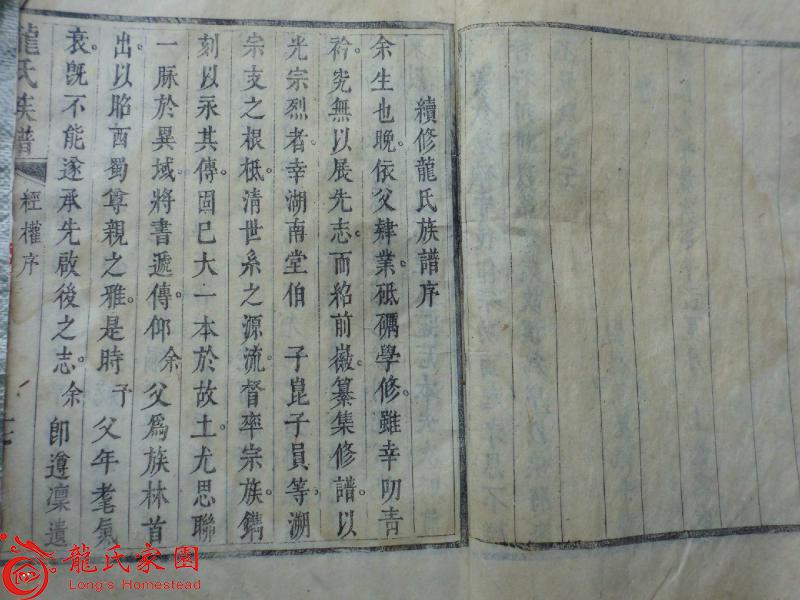 續修龍氏族譜序
余生也晚。依父肄業。砥礪學修。雖幸叨青
衿。究無以展先志。而紹前徽。纂集修譜。以
光宗烈者。幸湖南堂伯 子崑子員等。溯
宗支之根柢。清世系之源流。督率宗族。鐫
刻以永其傳。固已大一本於故土。尤思聯
一脈於異域。將書遞傳。仰余父爲族林首
出。以昭西蜀尊親之雅。是時予父年耄氣
衰。旣不能遂承先啟後之志。余卽遵凜遺
龍氏族譜
經權序
龍氏家園
Long's Homestead